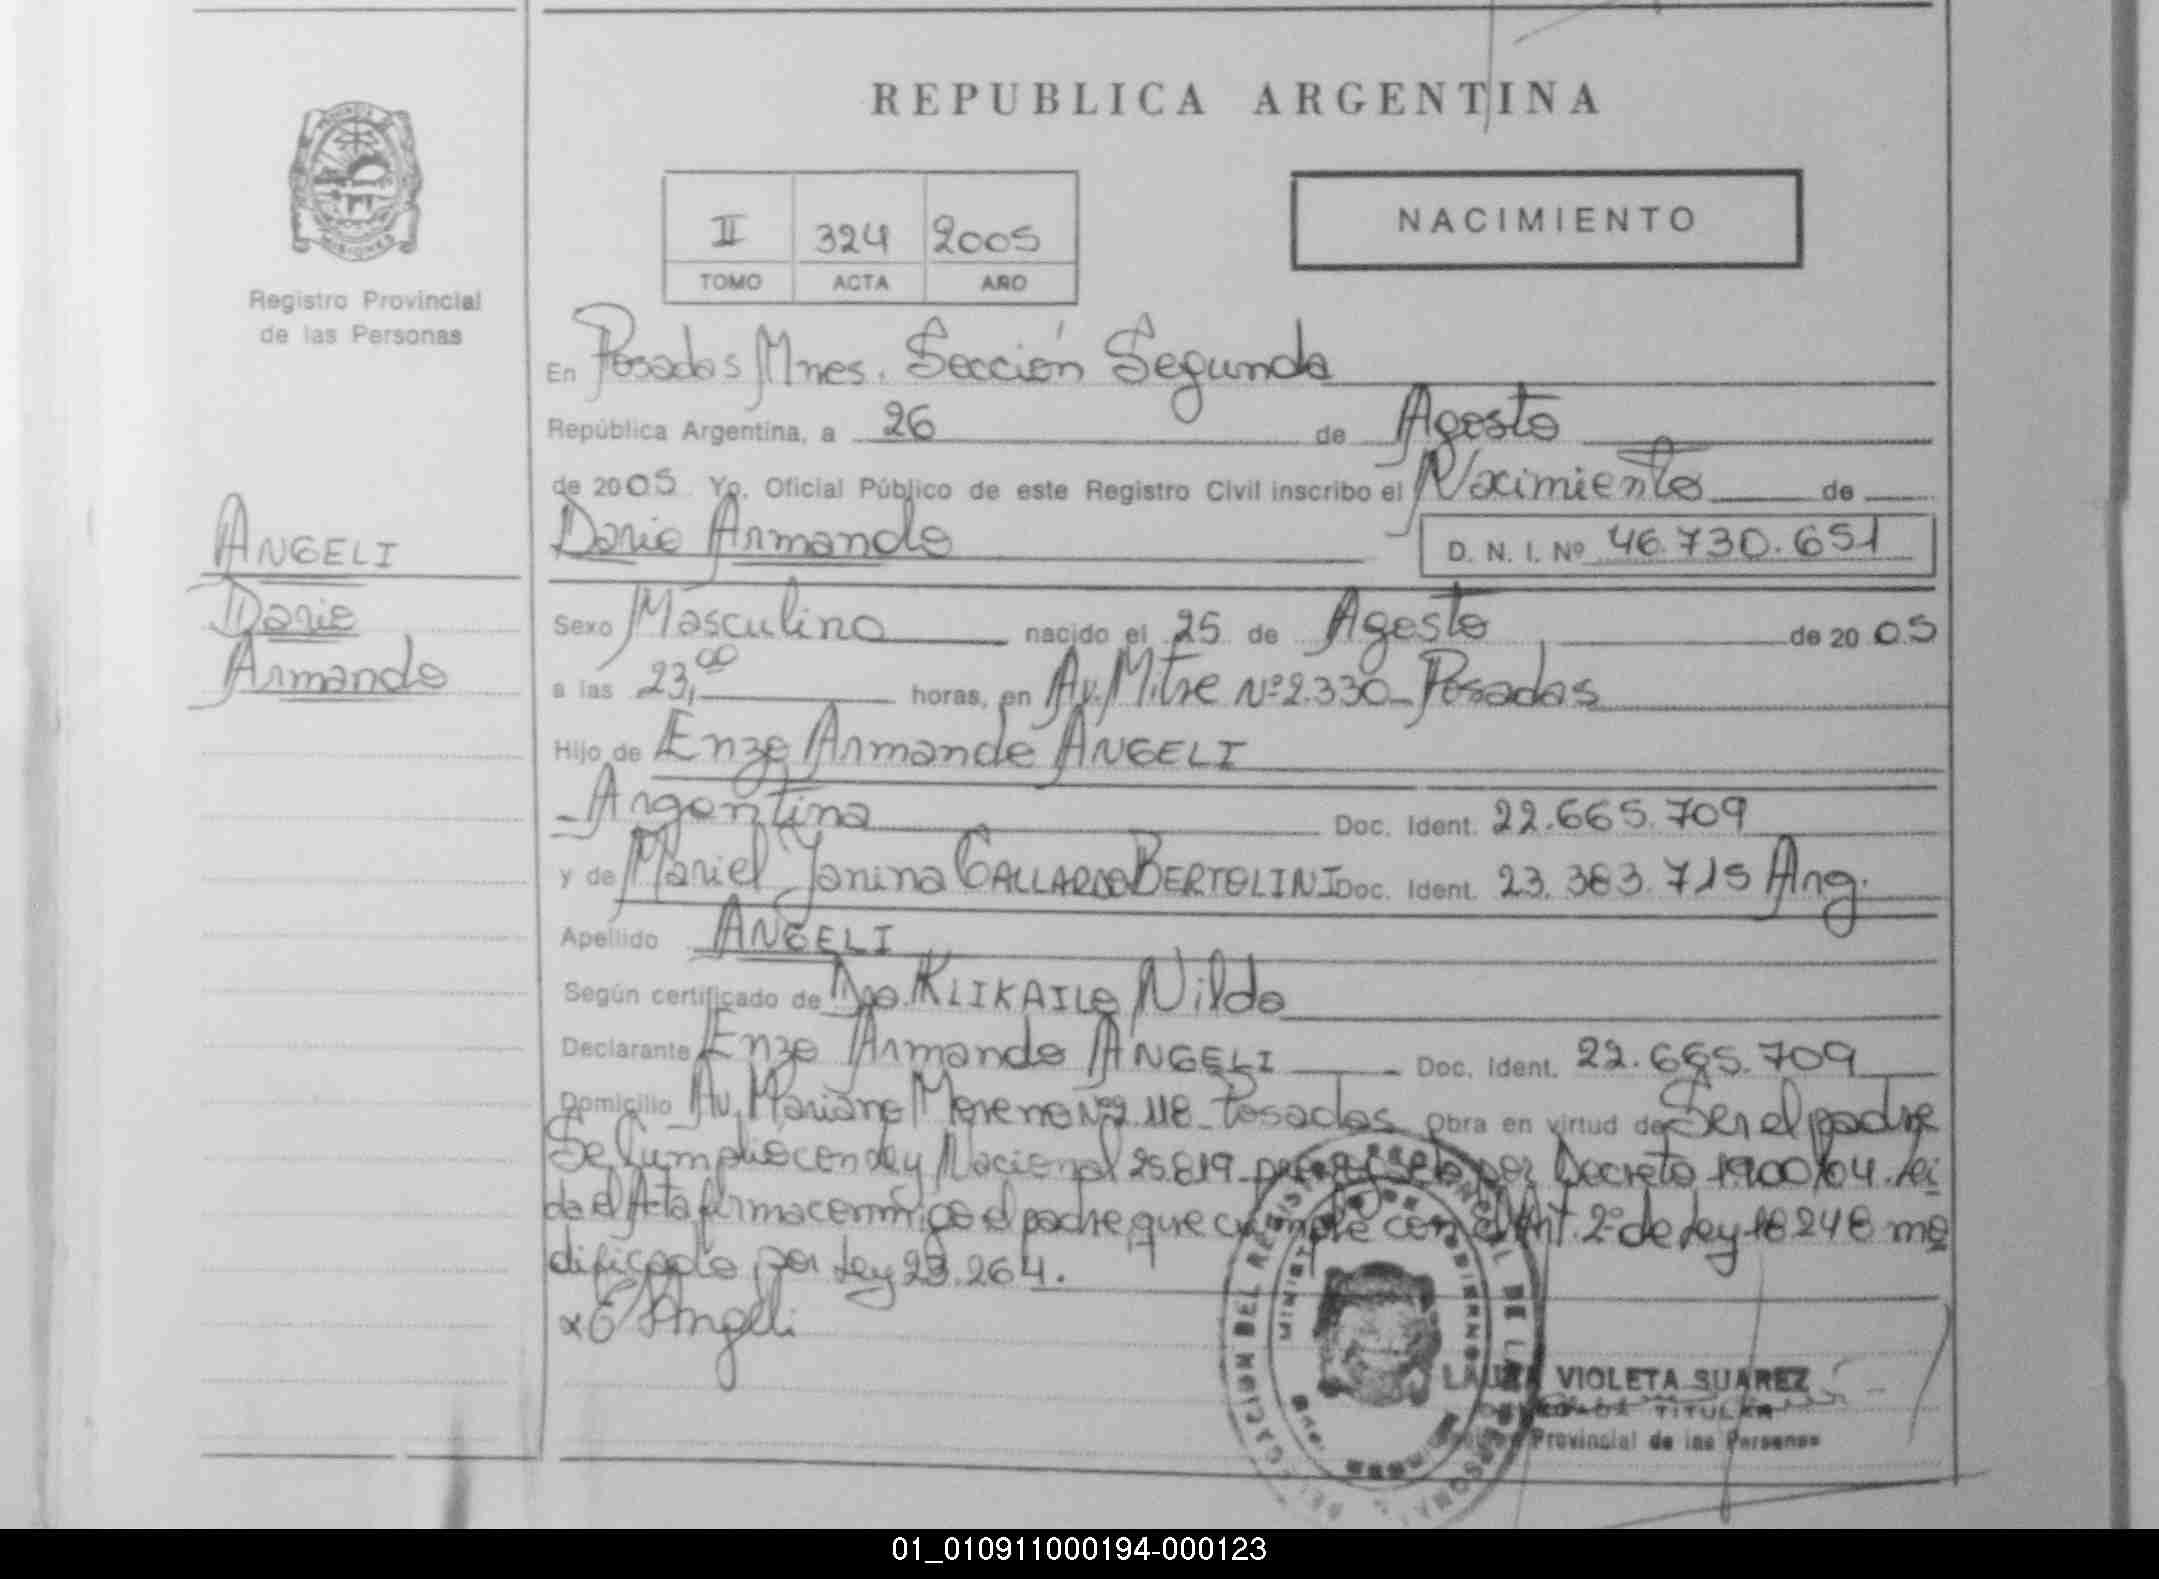 REPUBLICA ARGENTINA
MISIONES
Registro Provincial
de las Personas
II 324 2005
TOMO ACTA AÑO
NACIMIENTO
En Posadas Mnes. Sección Segunda
República Argentina, a 26 de Agosto
de 2005 Yo, Oficial Público de este Registro Civil inscribo el Nacimiento de
Dario Armando D. N. I. Nº 46.730.651
ANGELI
Dario
Armando
Sexo Masculino nacido el 25 de Agosto de 20 05
a las 23,00 horas, en Av. Mitre Nº 2.330_ Posadas
Hijo de Enzo Armando ANGELI
_Argentina Doc. Ident. 22.665.709
y de Mariel Janina GALLARDO BERTOLINI Doc. Ident. 23.383.715 Arg.
Apellido ANGELI
Según certificado de KLIKAILO Nilda
Declarante Enzo Armando ANGELI Doc. Ident. 22.665.709
Domicilio Av. Mariano Moreno Nº 2.118_ Posadas Obra en virtud de Ser el padre
Se cumplio con Ley Nacional 25.819 por Decreto 1900/04. Lei
da el Acta firma conmigo el padre que cumple con el Art. 2º de Ley 18248 mo
dificado por Ley 23.264.
x E Angeli
LAURA VIOLETA SUAREZ
DELEGADA TITULAR
Registro Provincial de las Personas
DELEGACION DEL REGISTRO PROVINCIAL DE LAS PERSONAS
MINISTERIO DE GOBIERNO
01_010911000194-000123